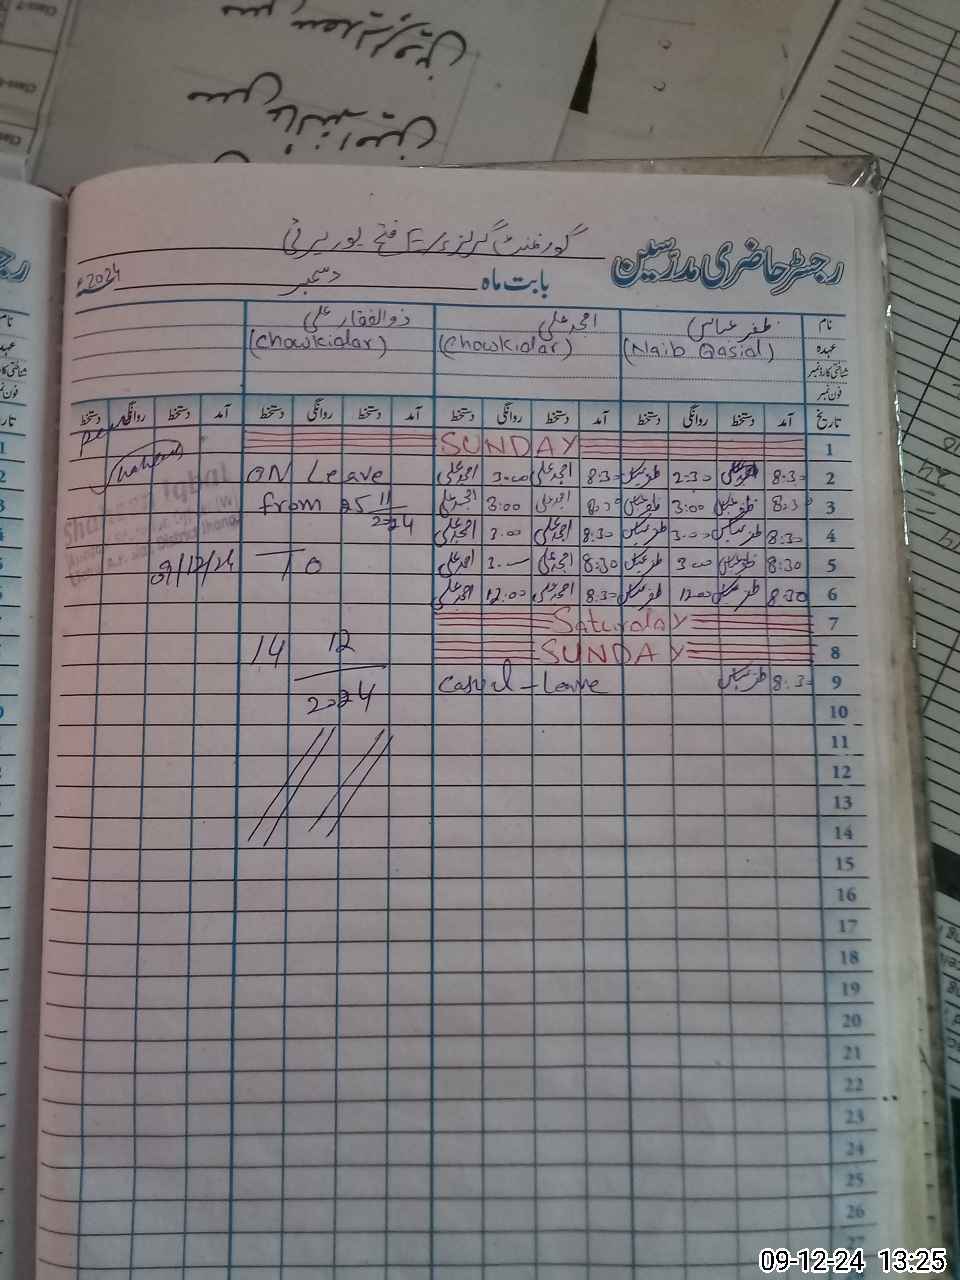 رجسٹر حاضری مدرسین
گورنمنٹ گرلز E/S فتح پور
بابت ماہ دسمبر 2024ء
نام ظفر عباس امجد علی ذوالفقار علی
عہدہ (Naib Qasid) (Chowkidar) (Chowkidar)
شناختی کارڈ نمبر
فون نمبر
تاریخ آمد دستخط روانگی دستخط آمد دستخط روانگی دستخط آمد دستخط روانگی دستخط آمد دستخط روانگی دستخط
1 SUNDAY
2 8:30 ظفر عباس 2:30 ظفر عباس 8:30 امجد علی 3:00 امجد علی ON Leave
3 8:30 ظفر عباس 3:00 ظفر عباس 8:30 امجد علی 3:00 امجد علی from 25 11 2024
4 8:30 ظفر عباس 3:00 ظفر عباس 8:30 امجد علی 3:00 امجد علی
5 8:30 ظفر عباس 3:00 ظفر عباس 8:30 امجد علی 3:00 امجد علی TO
6 8:30 ظفر عباس 12:00 ظفر عباس 8:30 امجد علی 12:00 امجد علی
7 Saturday
8 SUNDAY 14 12
9 8:30 ظفر عباس Casual-Leave 2024
10
11
12
13
14
15
16
17
18
19
20
21
22
23
24
25
26
27
Iqbal
09/12/24
09-12-24 13:25